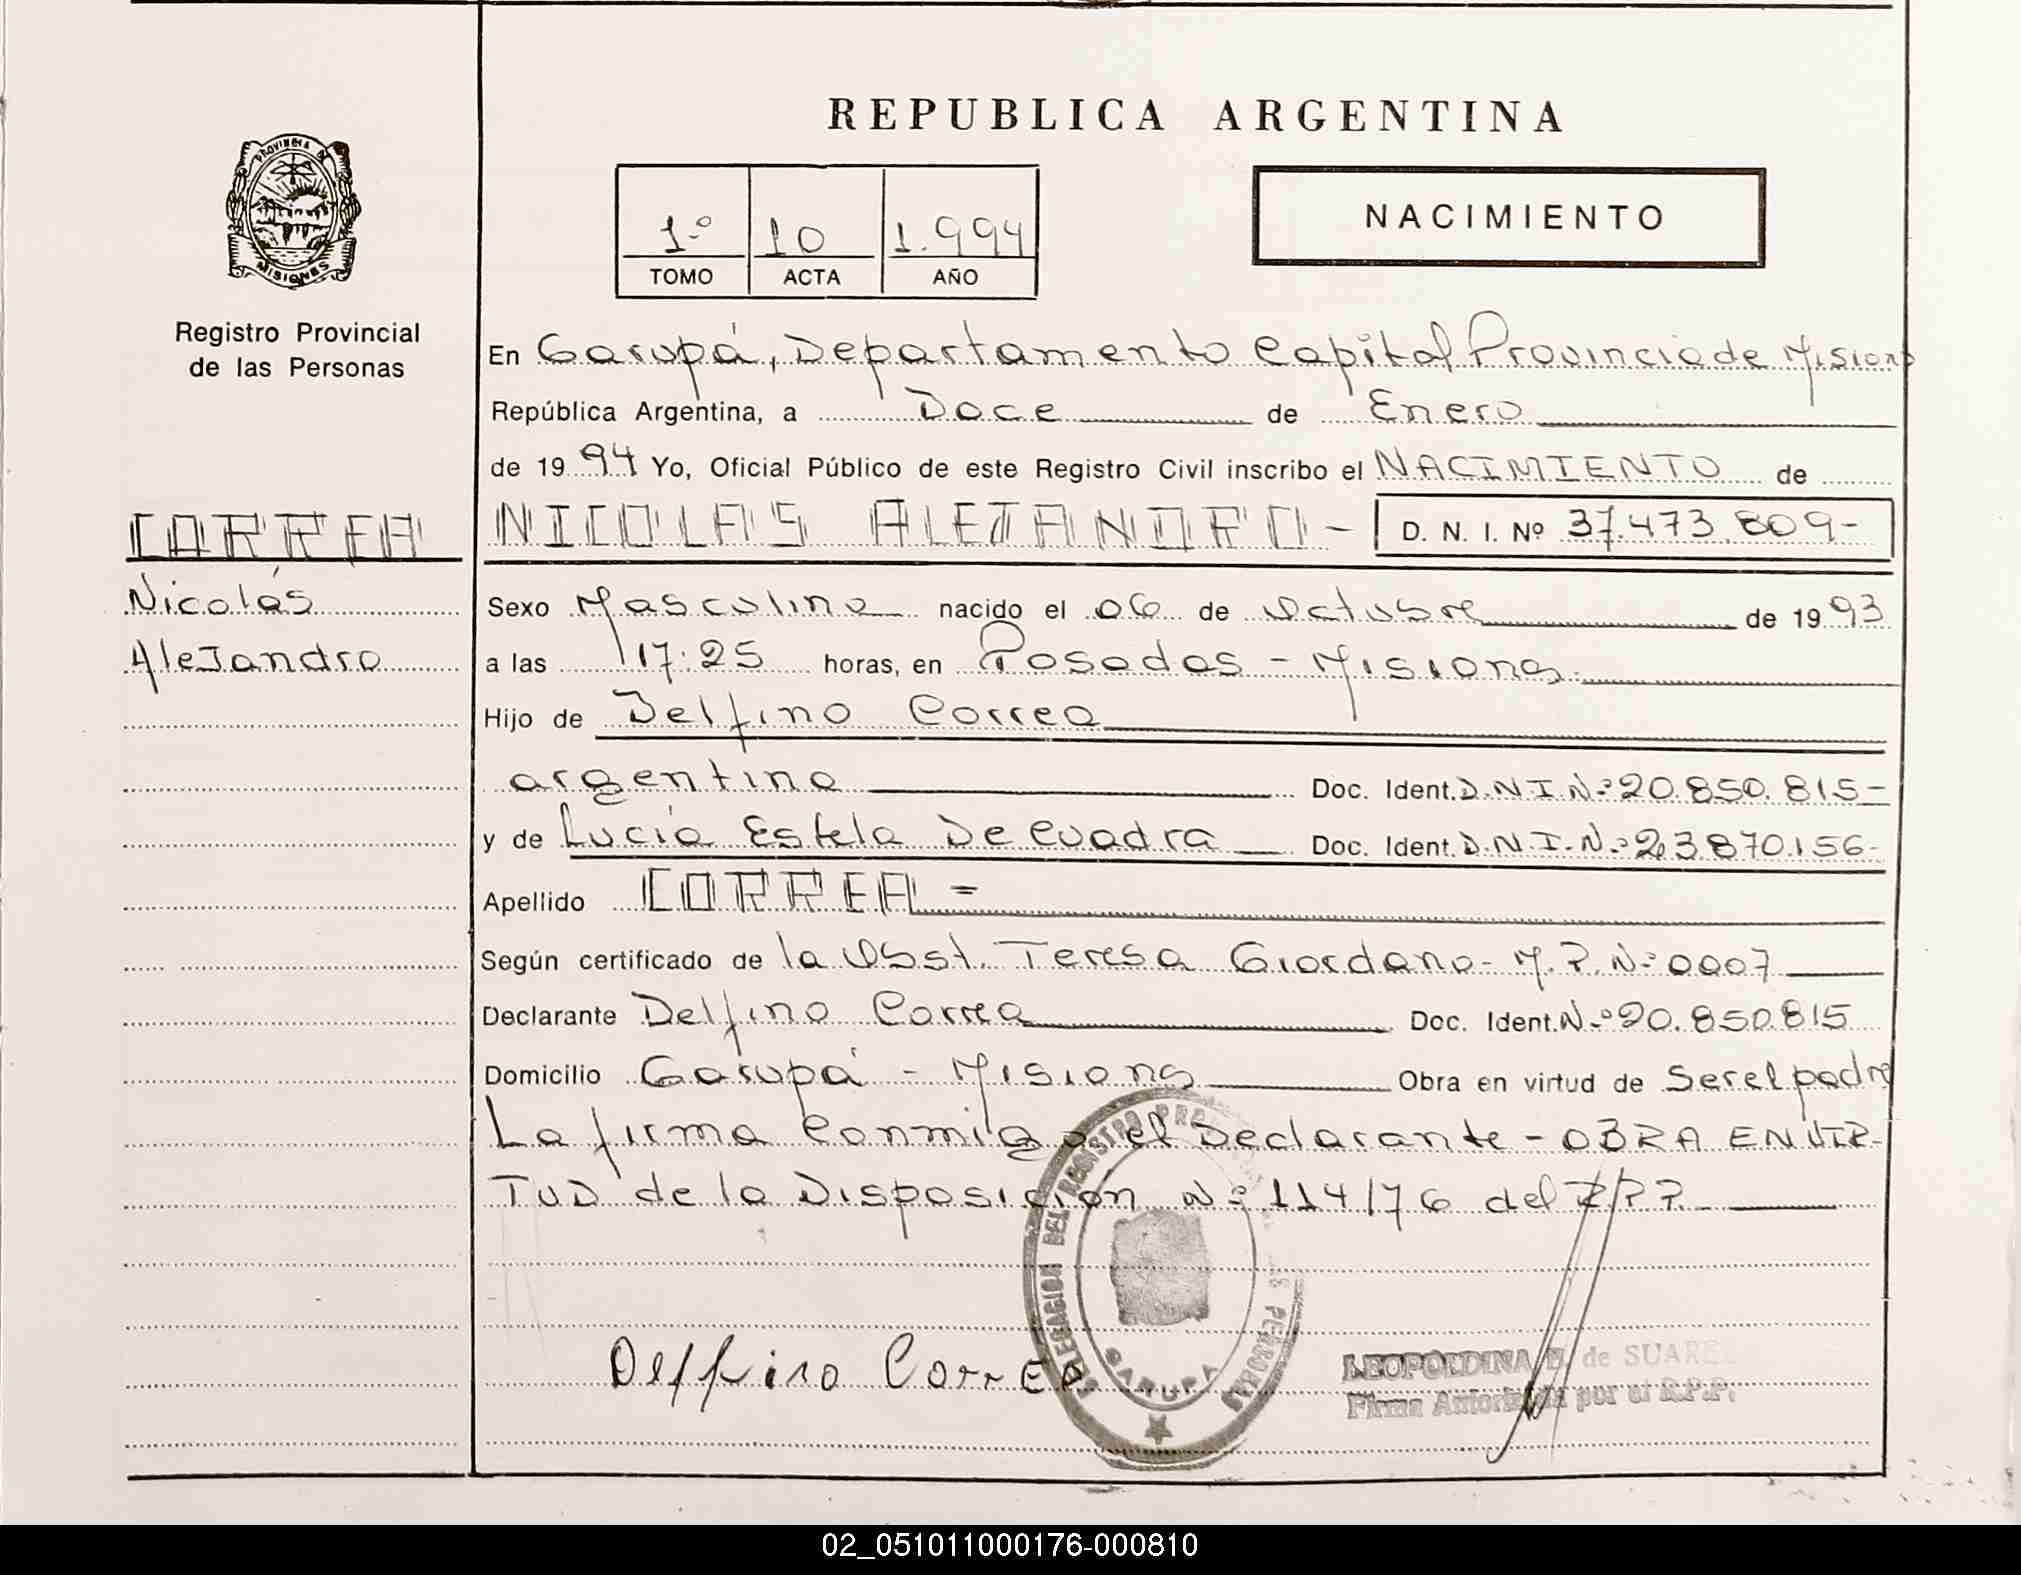 REPUBLICA ARGENTINA
PROVINCIA DE
MISIONES
Registro Provincial
de las Personas
1º 10 1.994
TOMO ACTA AÑO
NACIMIENTO
En Garupá, Departamento Capital Provincia de Misiones
República Argentina, a Doce de Enero
de 1994 Yo, Oficial Público de este Registro Civil inscribo el NACIMIENTO de
CORREA NICOLAS ALEJANDRO - D. N. I. Nº 37.473.809-
Nicolás Sexo Masculino nacido el 06 de Octubre de 1993
AleJandro a las 17:25 horas, en Posadas - Misiones.
Hijo de Delfino Correa
argentino Doc. Ident. D.N.I.Nº 20.850.815-
y de Lucía Estela De Cuadra Doc. Ident. D.N.I.Nº 23.870.156-
Apellido CORREA =
Según certificado de la Obst. Teresa Giordano- M.P.Nº 0007
Declarante Delfino Correa Doc. Ident. Nº 20.850.815
Domicilio Garupá - Misiones Obra en virtud de Ser el padre
La firma Conmigo el Declarante - OBRA EN VIR-
TUD de la Disposición Nº 114/76 del R.P.P.
DELEGACION DEL REGISTRO PERSONAS
GARUPA
Delfino Correa
LEOPOLDINA de SUAREZ
Firma Autorizada por el R.P.P.
02_051011000176-000810